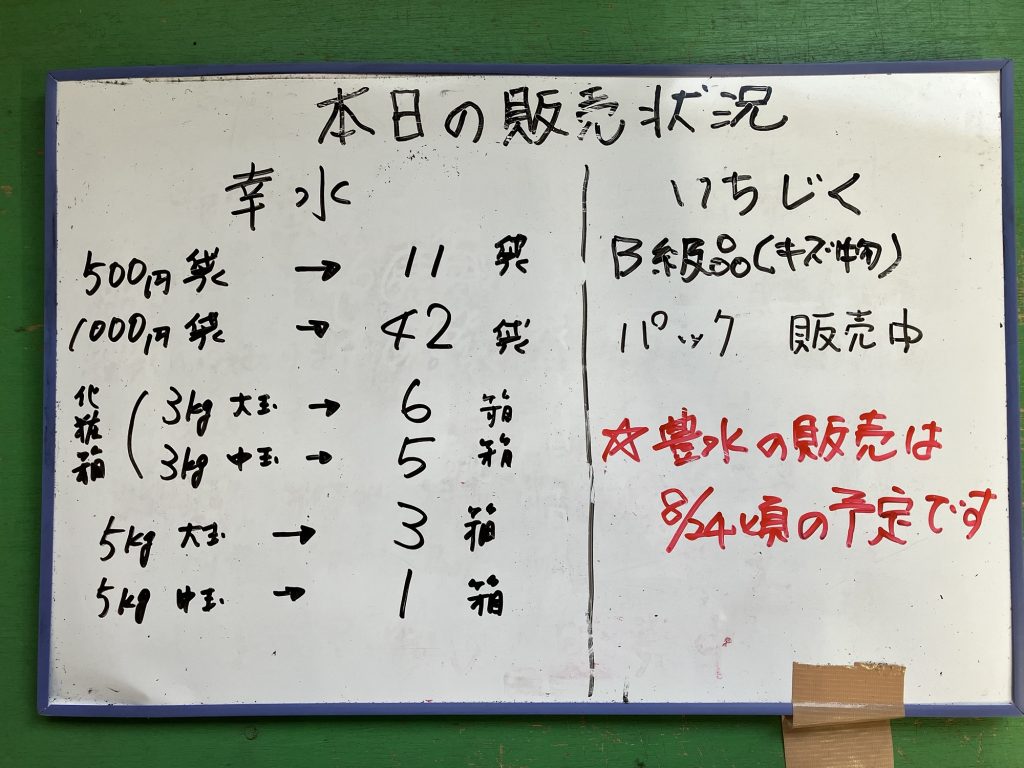 本日の販売状況
幸水
500円袋 → 11 袋
1000円袋 → 42 袋
化粧箱
3kg 大玉 → 6 箱
3kg 中玉 → 5 箱
5kg 大玉 → 3 箱
5kg 中玉 → 1 箱
いちじく
B級品(キズ物)
パック 販売中
☆豊水の販売は
8/24頃の予定です